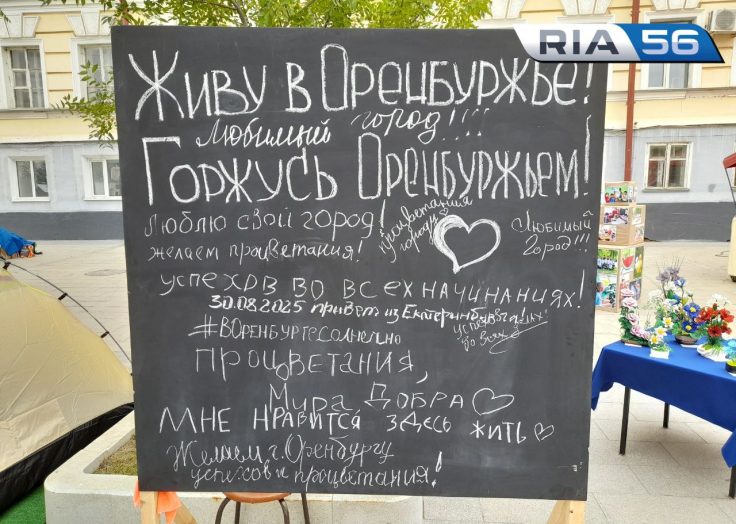 RIA 56
Живу в Оренбуржье!
Любимый город!!!!
Горжусь Оренбуржьем!
Люблю свой город!
Процветания городу
Любимый город!!!
желаем процветания!
успехов во всех начинаниях!
30.08.2025 привет из Екатеринбурга!
успехов во всех делах!
#ВОренбургесолнечно
процветания,
Мира Добра
мне нравится здесь жить
Желаем г. Оренбургу
успехов и процветания!